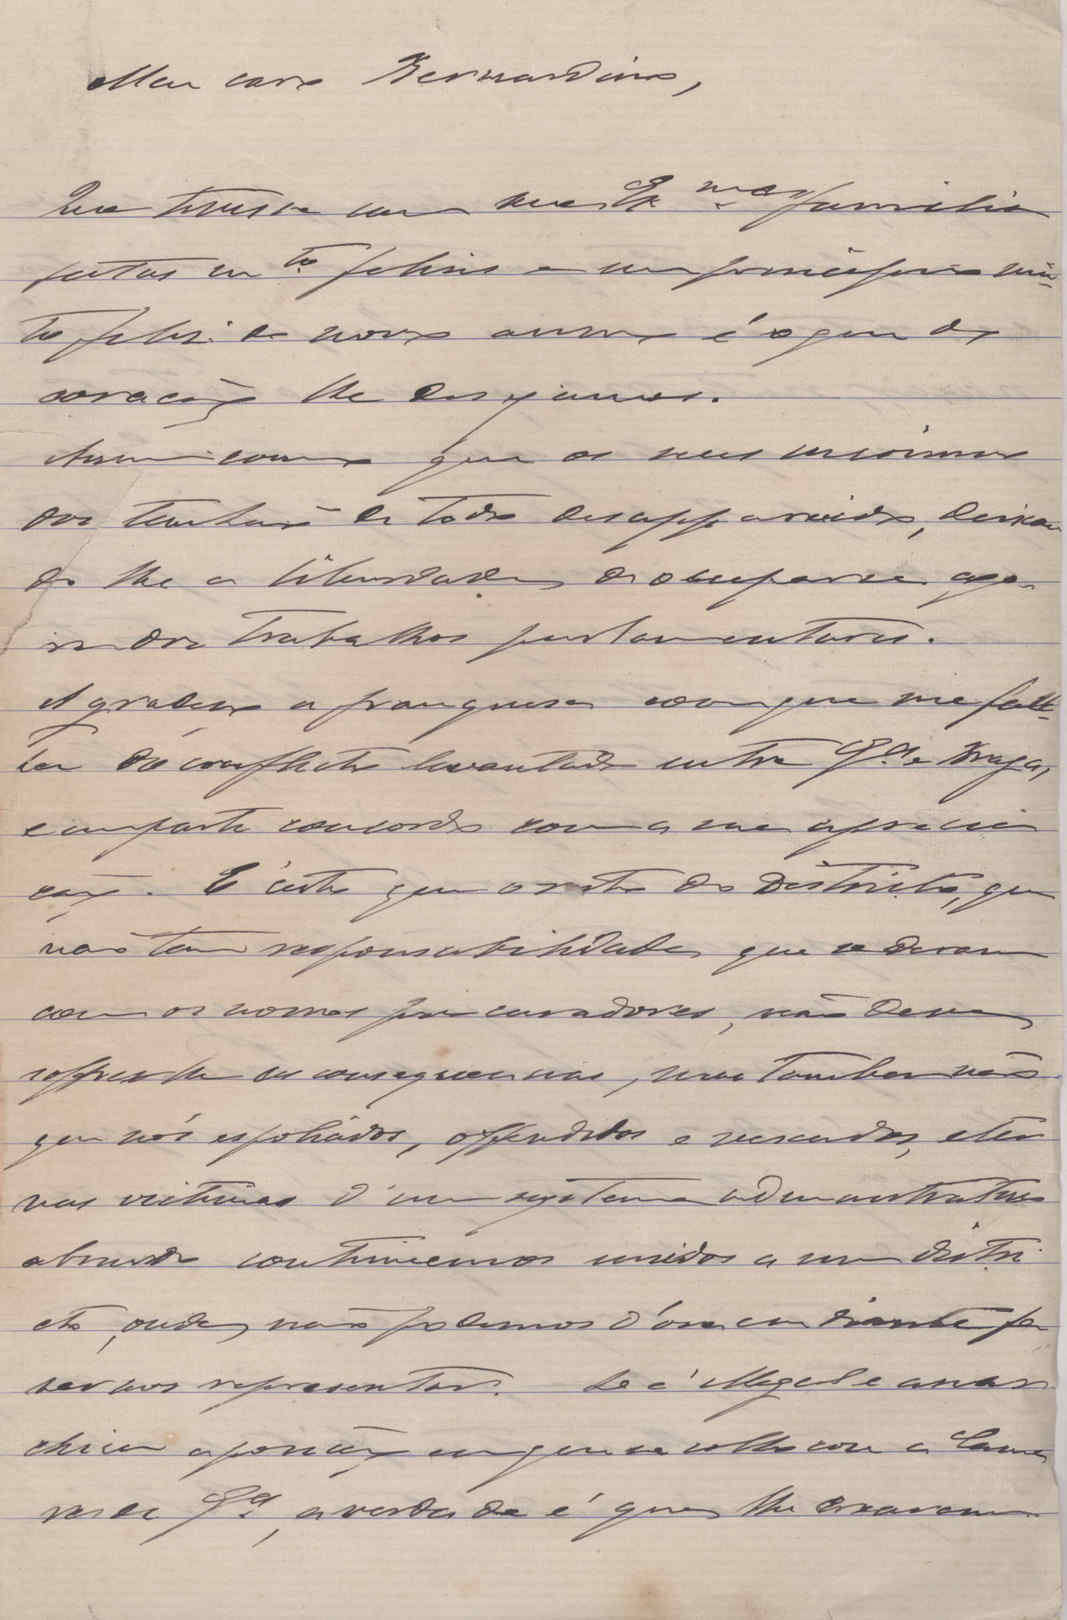 Meu caro Bernardino,
Que tivesse com sua Ex.mas familia
festas m.to felizes e um principio mui-
to feliz de novo anno é o que de
coração lhe desejamos.
Assim como que os seus incommo
dos tenhão de todo desapparecido, deixan
do lhe a liberdade de occupar-se ago-
ra dos trabalhos parlamentares.
Agradeço a franquesa com que me fal-
la do conflicto levantado entre G.es e Braga,
e em parte concordo com a sua aprecia
ção. É certo que o resto do Districto, que
não tem responsabilidade que se deram
com os nossos procuradores, não deve
soffrer lhe as consequencias, mas tambem não
que nós espoliados, offendidos e vexados, eter
nas victimas d'um systema administrativo
absurdo continuemos unidos a um distri
cto, onde não podemos d'ora em diante fa
zer nos representar. Se é illegal e anar
chica a posição em que se collocou a Cama
ra de G.es, a verdade é que lhe crearam